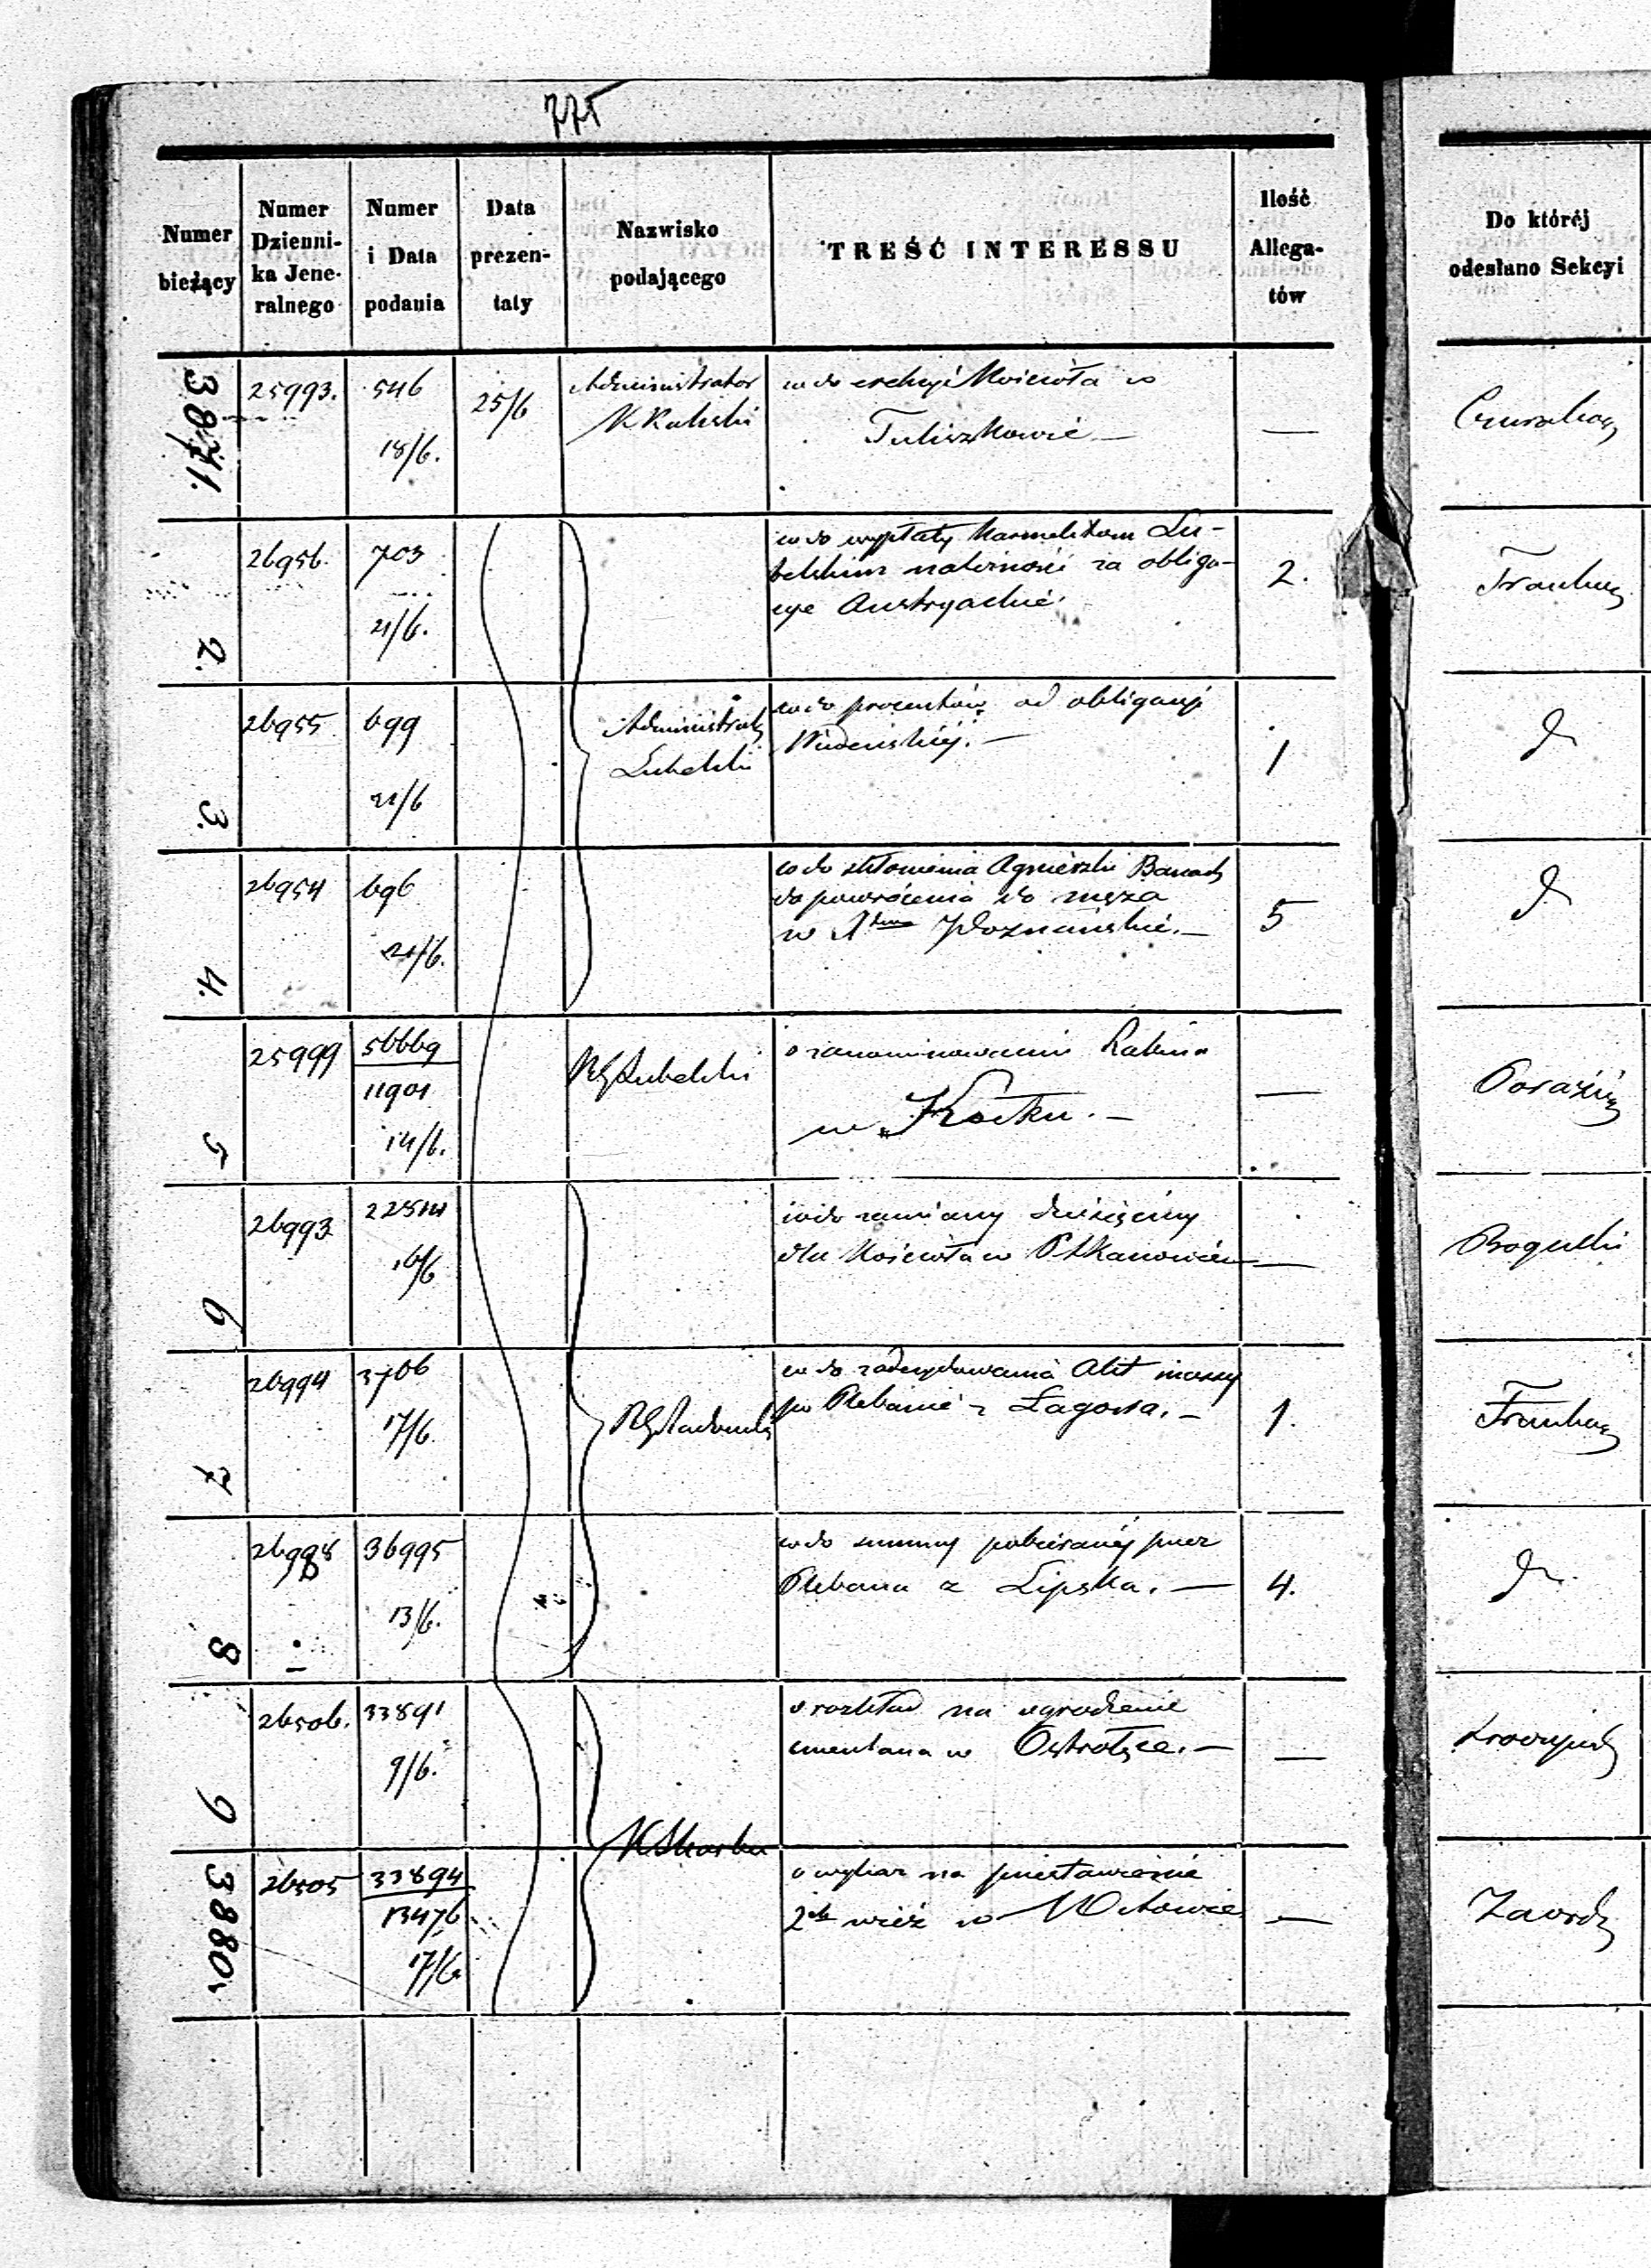 775
Numer bieżący
Numer Dzienni-ka Jene-ralnego
Numer i Data podania
Data prezen-taty
Nazwisko podającego
TREŚĆ INTERESSU
Ilość Allega-tów
Do któréj odesłano Sekcyi
3871.
25993.
546
18/6.
25/6
Administrator
co do erekcyi Kościoła w
Tuliszkowie —
—
2.
26956.
703
21/6.
co do wypłaty Karmelitom Lu-
belskim należności za obliga-
cye Austryackie.
2.
3.
26955
699
21/6
Administrator
Lubelski
co do procentów od obligacyi
Wiedeńskiéj. —
1
4.
26954
696
21/6.
co do skłonienia Agnieszki
do powrócenia do męża
w Poznańskie. —
5
5
25999
56669
11901
14/6.
RG Lubelski
o zanominowanie Rabina
w Kocku. —
—
6
26993
22514
16/6
co do zamiany dziesięciny
dla Kościoła w
—
Bogucki
7
26994
3706
17/6.
RG Radomski
co do zadecydowania Akt massy
po Plebanie z Łagowa. —
1.
8
36995
13/6.
co do summy pobieranéj przez
Plebana z Lipska. —
4.
9
26506.
33891
9/6.
o rozkład na ogrodzenie
cmentarza w Ostrołęce. —
—
K Skarbu
3880.
26505
33894
13476
17/6
o wykaz na przestawienie
2ch wież w Witowie
—